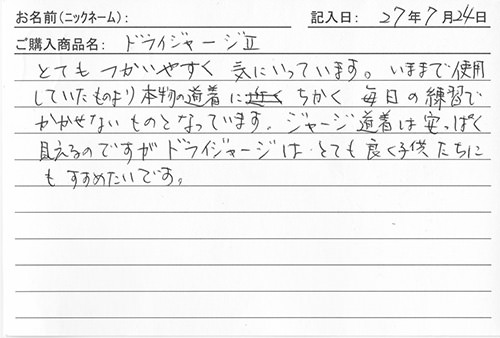 お名前(ニックネーム): 記入日: 27年7月24日
ご購入商品名: ドライジャージⅡ
とても つかいやすく 気にいっています。 いままで使用
していたものより 本物の道着に ちかく 毎日の練習で
かかせない ものとなっています。 ジャージ道着は安っぽく
見えるのですが ドライジャージは とても 良く子供たちに
も すすめたいです。